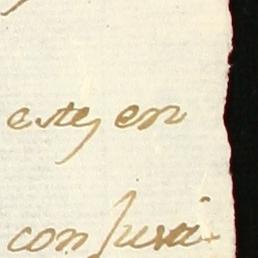 este, en
con Justi-